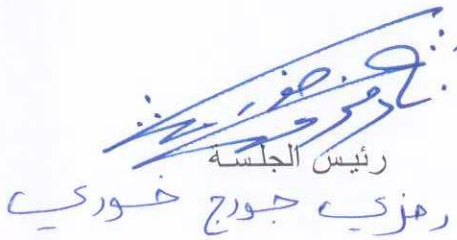 رئيس الجلسة
رمزي جورج خوري